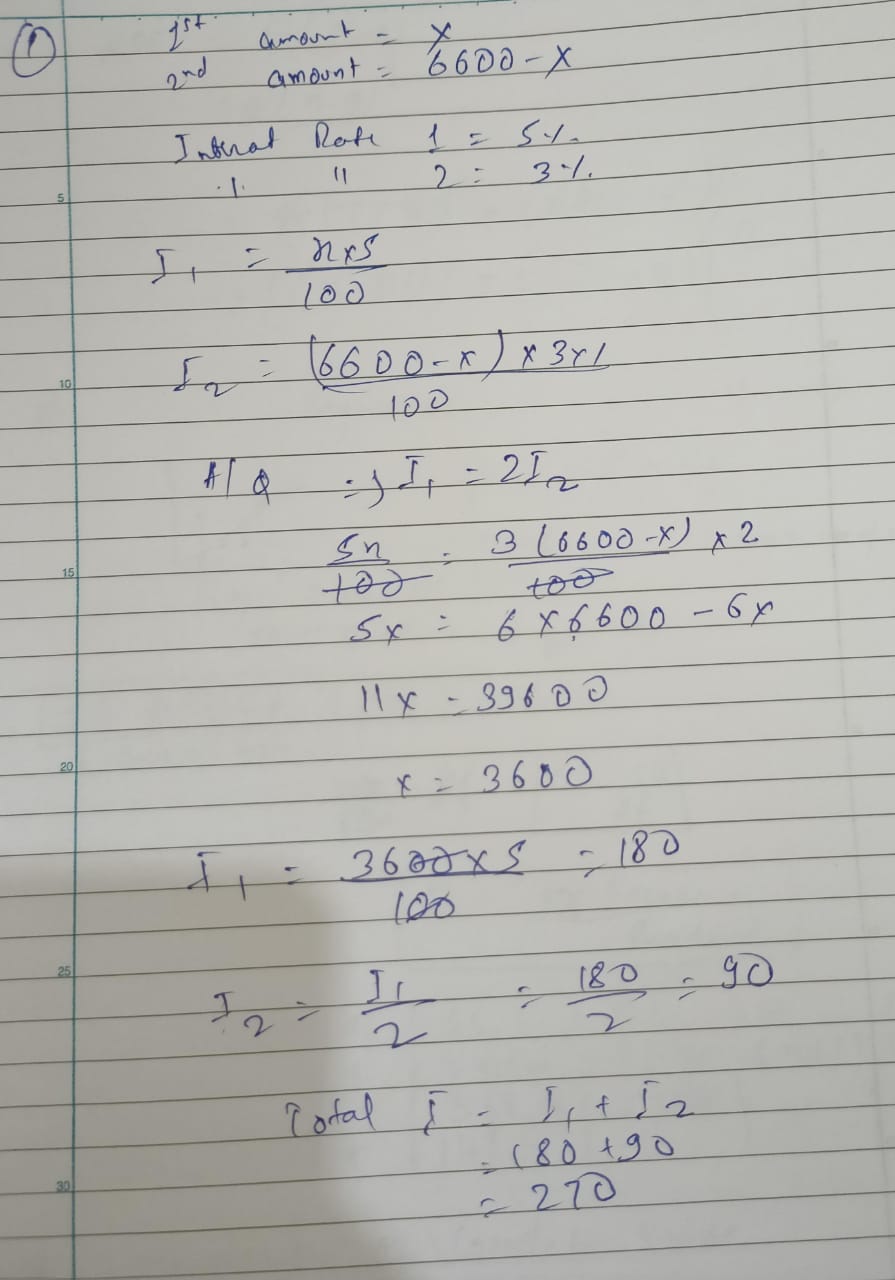 ① 1st amount = x
2nd amount = 6600 - x
Interest Rate 1 = 5%
" " 2 = 3%
5
I₁ = x×5 / 100
I₂ = (6600 - x) × 3×1 / 100
10
A/Q => I₁ = 2I₂
5x / 100 = 3 (6600 - x) × 2 / 100
15
5x = 6 × 6600 - 6x
11x = 39600
20
x = 3600
I₁ = 3600×5 / 100 = 180
25
I₂ = I₁ / 2 = 180 / 2 = 90
Total I = I₁ + I₂
= 180 + 90
30
= 270